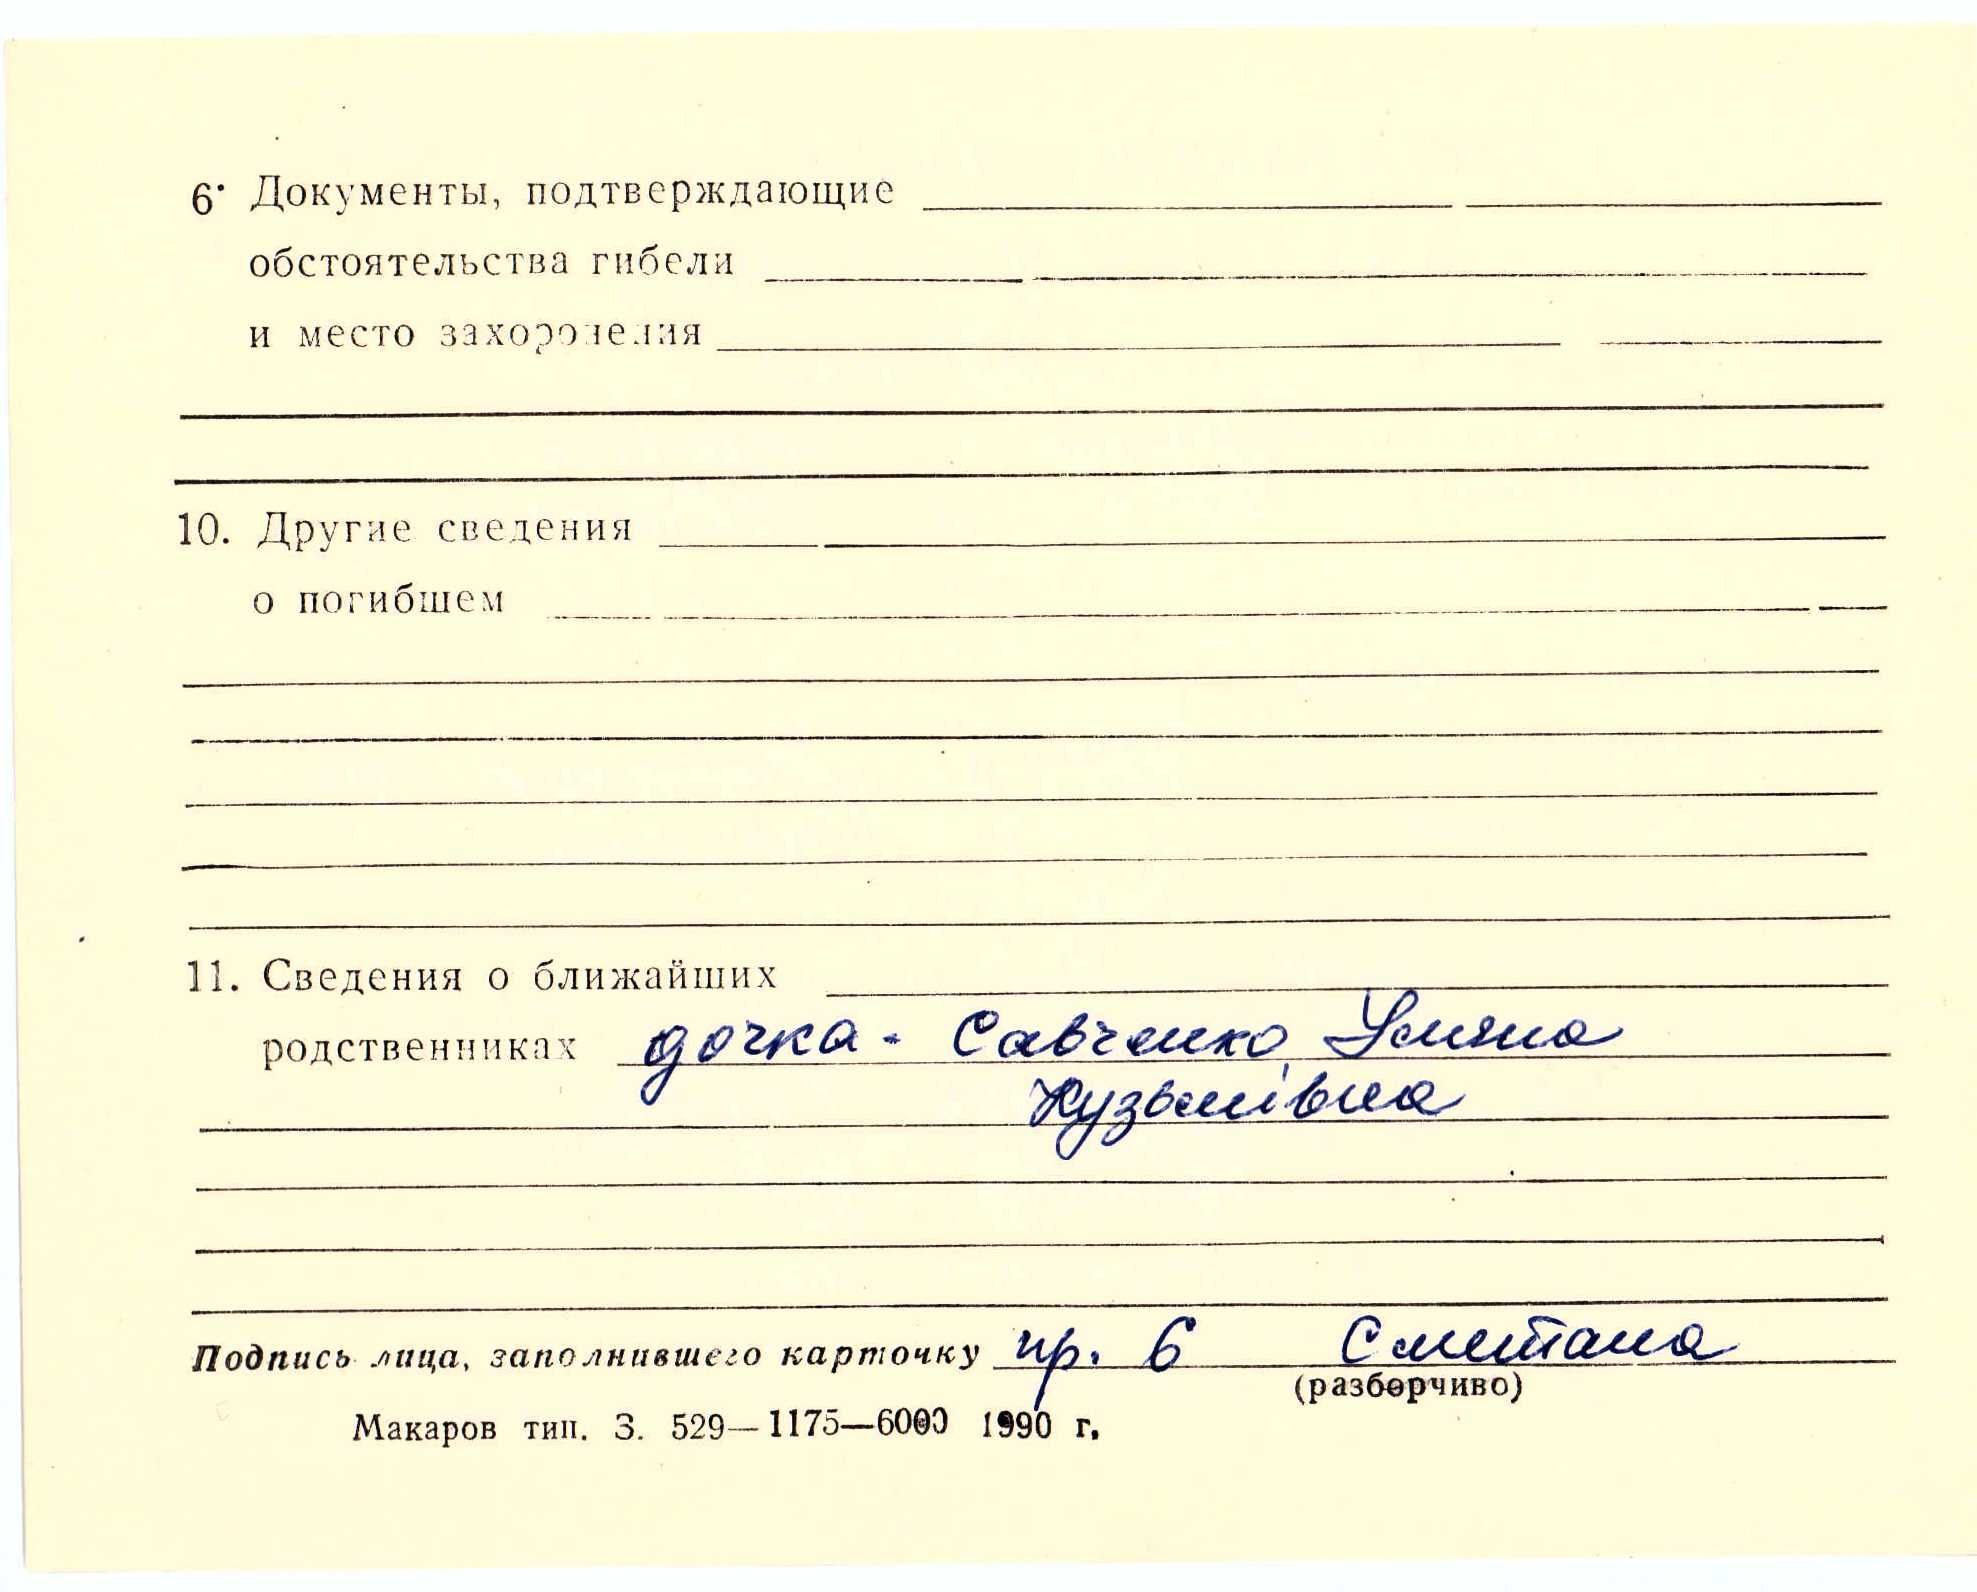 6. Документы, подтверждающие
обстоятельства гибели
и место захоронения
10. Другие сведения
о погибшем
11. Сведения о ближайших
родственниках дочка - Савченко Уляна
Кузьмівна
Подпись лица, заполнившего карточку пр. б Сметана
(разборчиво)
Макаров тип. З. 529—1175—6000 1990 г.